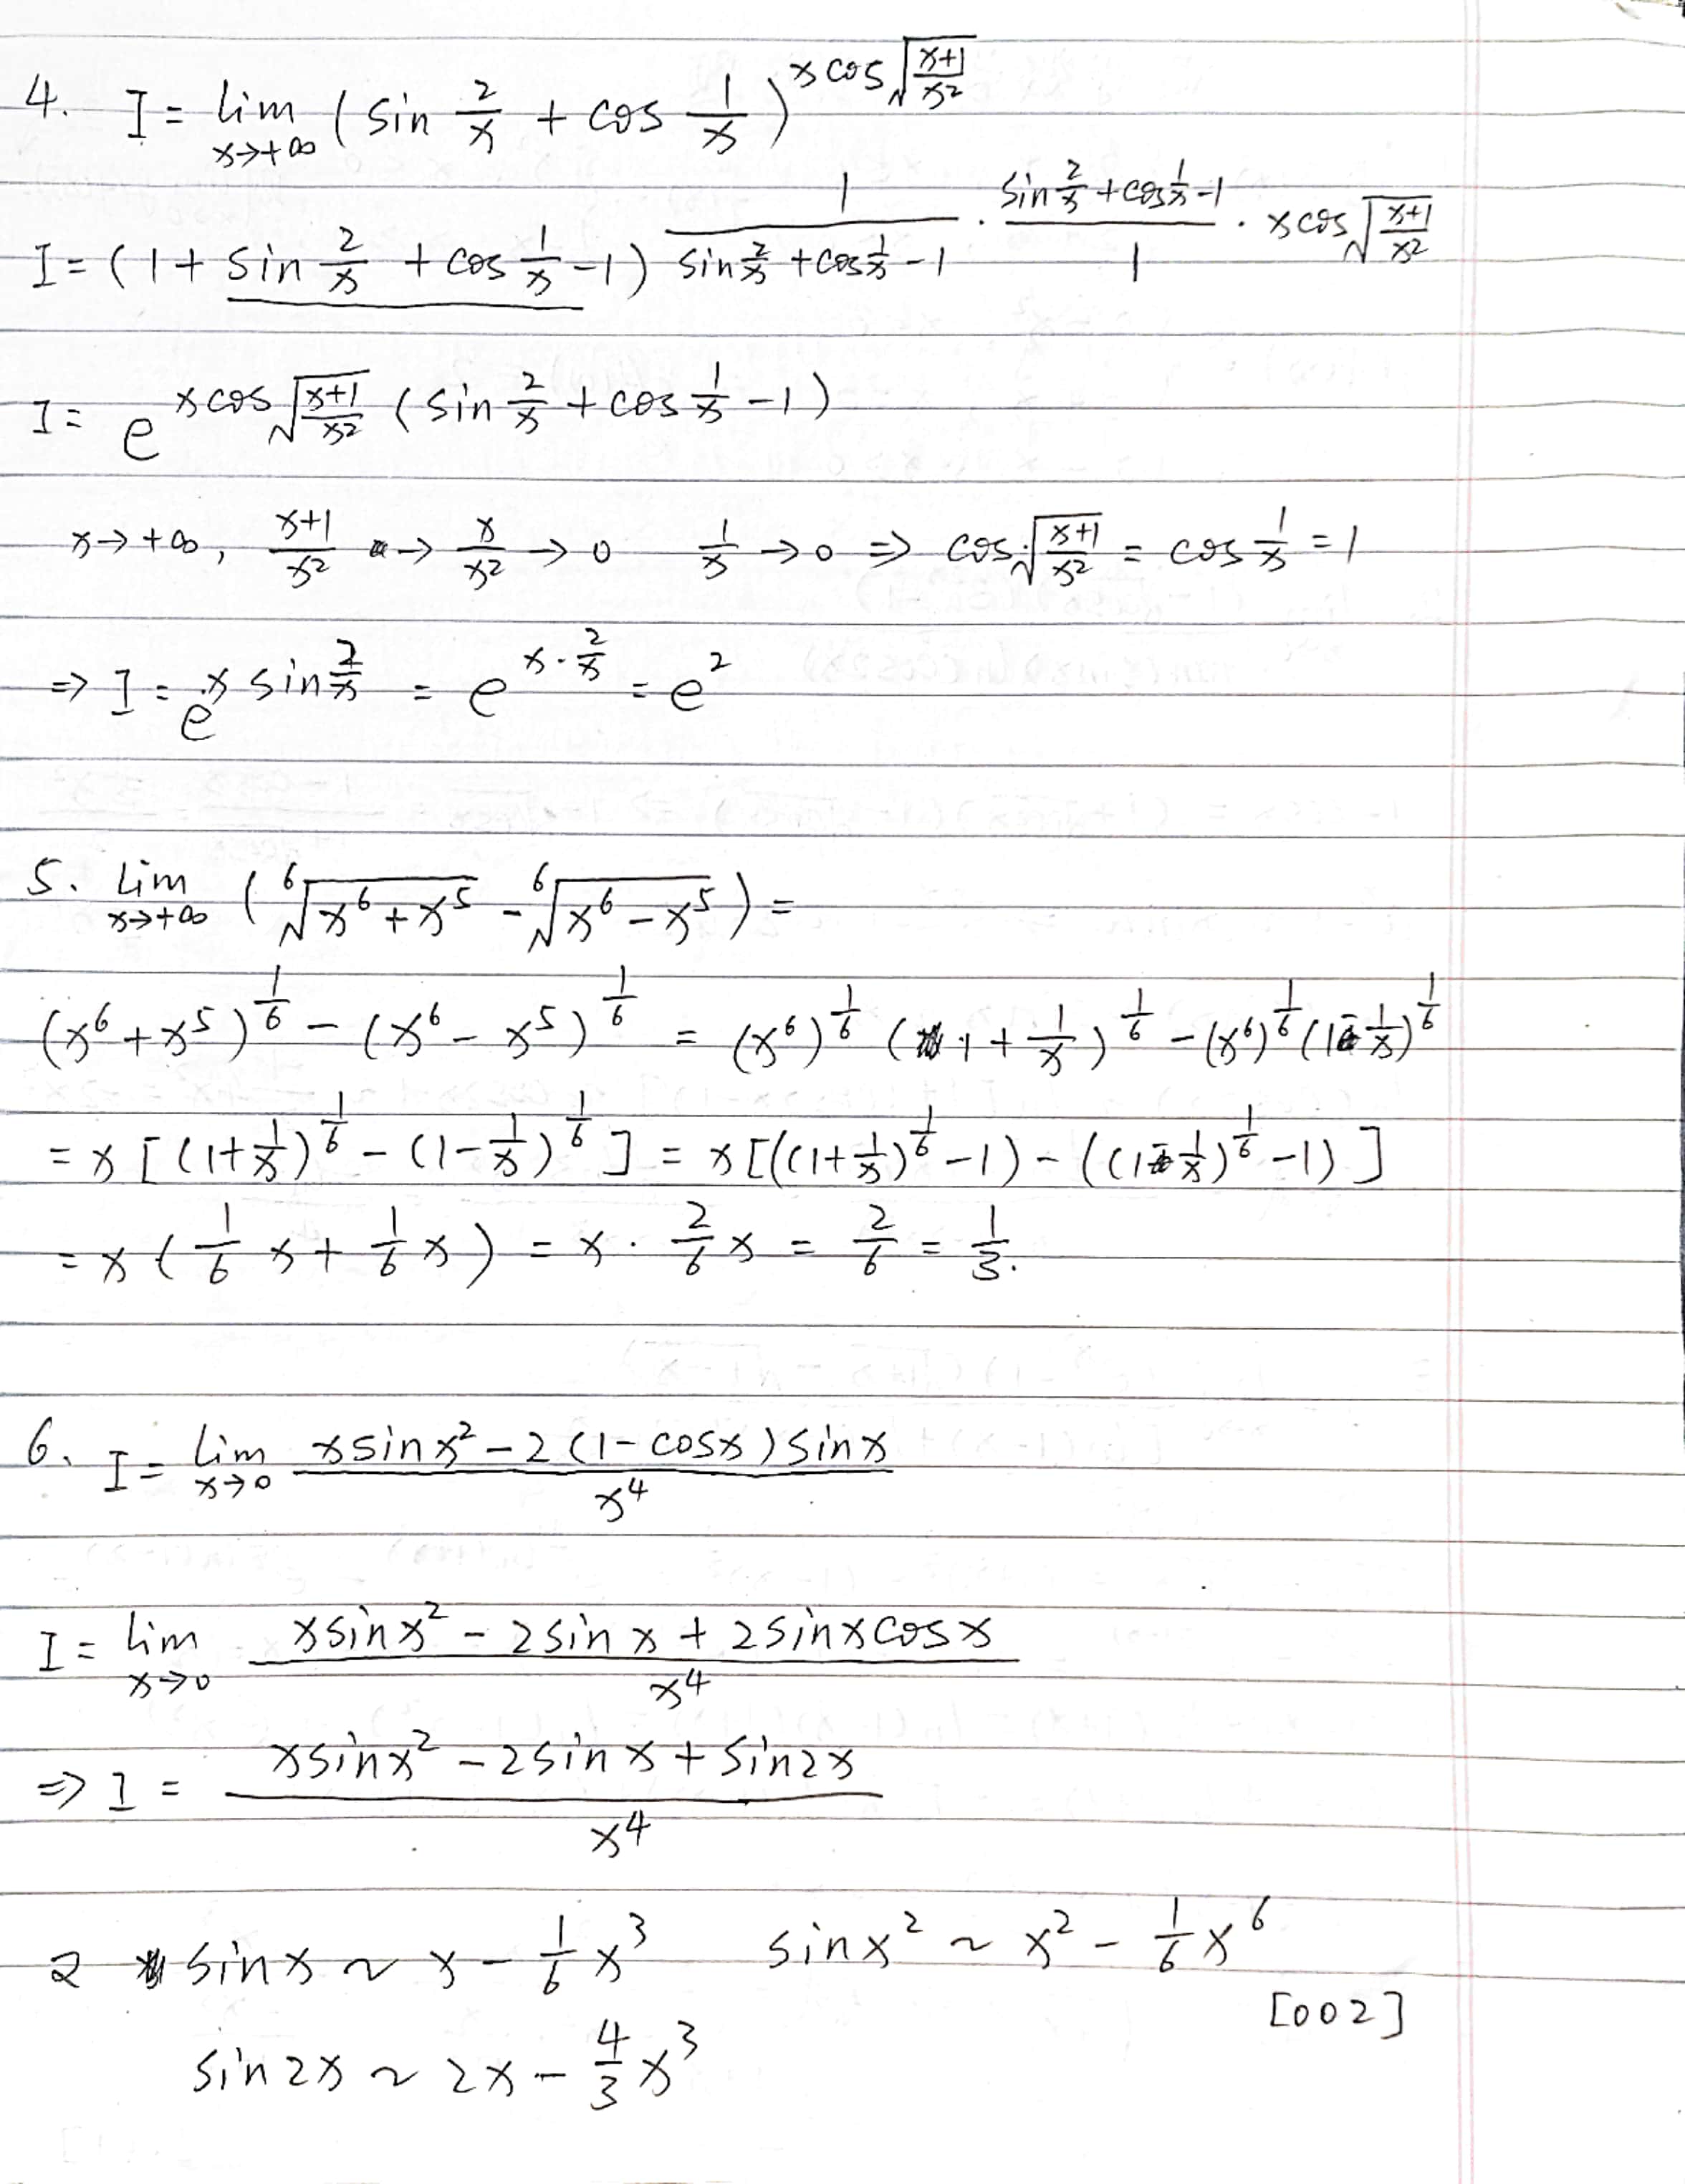 4. I = lim_{x→+∞} (sin 2/x + cos 1/x)^{x cos √((x+1)/x²)}
I = (1 + sin 2/x + cos 1/x - 1)^{1/(sin 2/x + cos 1/x - 1) · (sin 2/x + cos 1/x - 1)/1 · x cos √((x+1)/x²)}
I = e^{x cos √((x+1)/x²) (sin 2/x + cos 1/x - 1)}
x→+∞, (x+1)/x² → x/x² → 0 1/x → 0 ⇒ cos √((x+1)/x²) = cos 1/x = 1
⇒ I = e^{x sin 2/x} = e^{x · 2/x} = e^2
5. lim_{x→+∞} (⁶√(x⁶ + x⁵) - ⁶√(x⁶ - x⁵)) =
(x⁶ + x⁵)^{1/6} - (x⁶ - x⁵)^{1/6} = (x⁶)^{1/6} (1 + 1/x)^{1/6} - (x⁶)^{1/6} (1 - 1/x)^{1/6}
= x [(1 + 1/x)^{1/6} - (1 - 1/x)^{1/6}] = x [((1 + 1/x)^{1/6} - 1) - ((1 - 1/x)^{1/6} - 1)]
= x (1/6 x + 1/6 x) = x · 2/6 x = 2/6 = 1/3.
6. I = lim_{x→0} (x sin x² - 2(1 - cos x) sin x)/x⁴
I = lim_{x→0} (x sin x² - 2 sin x + 2 sin x cos x)/x⁴
⇒ I = (x sin x² - 2 sin x + sin 2x)/x⁴
2 sin x ~ x - 1/6 x³ sin x² ~ x² - 1/6 x⁶
[002]
sin 2x ~ 2x - 4/3 x³